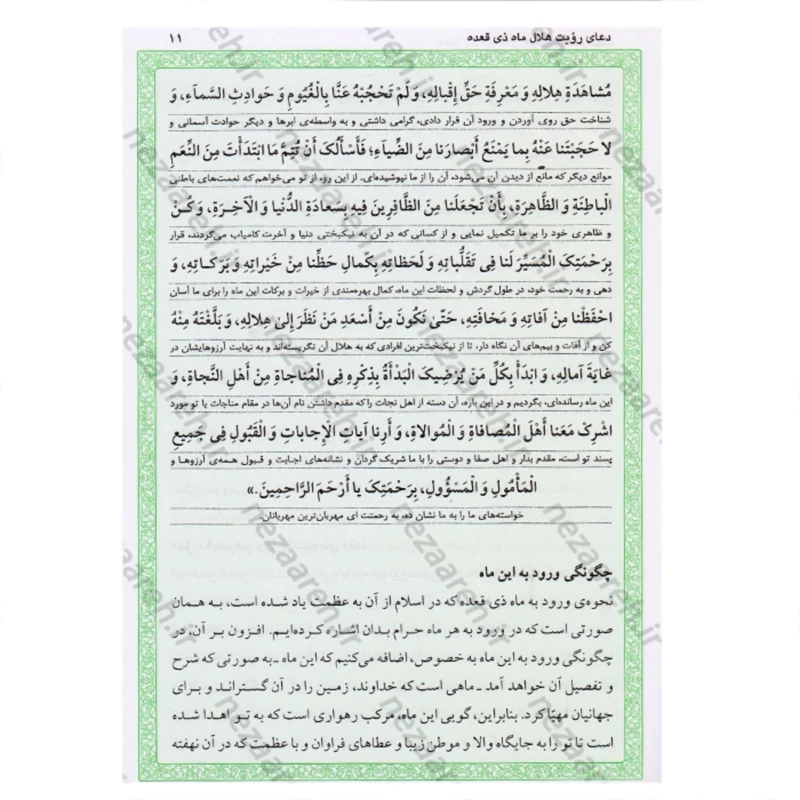 دعای رؤیت هلال ماه ذی قعده
۱۱
مُشاهَدَةِ هِلالِهِ وَ مَعْرِفَةِ حَقِّ إِقْبالِهِ، وَ لَمْ تَحْجُبْهُ عَنَّا بِالْغُیُومِ وَ حَوادِثِ السَّمآءِ، وَ
شناخت حق روی آوردن و ورود آن قرار دادی، گرامی داشتی و به واسطه‌ی ابرها و دیگر حوادث آسمانی و
لا حَجَبْتَنا عَنْهُ بِما یَمْنَعُ أَبْصارَنا مِنَ الضِّیآءِ؛ فَأَسْأَلُکَ أَنْ تُتِمَّ مَا ابْتَدَأْتَ مِنَ النِّعَمِ
موانع دیگر که مانع از دیدن آن می‌شود، آن را از ما نپوشیده‌ای. از این رو، از تو می‌خواهم که نعمت‌های باطنی
الْباطِنَةِ وَ الظَّاهِرَةِ، بِأَنْ تَجْعَلَنا مِنَ الظَّافِرینَ فیهِ بِسَعادَةِ الدُّنْیا وَ الْآخِرَةِ، وَ کُنْ
و ظاهری خود را بر ما تکمیل نمایی و از کسانی که در آن به نیکبختی دنیا و آخرت کامیاب می‌گردند، قرار
بِرَحْمَتِکَ الْمُسَیِّرَ لَنا فی تَقَلُّباتِهِ وَ لَحَظاتِهِ بِکَمالِ حَظِّنا مِنْ خَیْراتِهِ وَ بَرَکاتِهِ، وَ
دهی و به رحمت خود، در طول گردش و لحظات این ماه، کمال بهره‌مندی از خیرات و برکات این ماه را برای ما آسان
احْفَظْنا مِنْ آفاتِهِ وَ مَخافَتِهِ، حَتّیٰ نَکُونَ مِنْ أَسْعَدِ مَنْ نَظَرَ إِلیٰ هِلالِهِ، وَ بَلَّغْتَهُ مِنْهُ
کن و از آفات و بیم‌های آن نگاه دار، تا از نیکبخت‌ترین افرادی که به هلال آن نگریسته‌اند و به نهایت آرزوهایشان در
غایَةَ آمالِهِ، وَ ابْدَأْ بِکُلِّ مَنْ یُرْضیکَ الْبَدْأَةُ بِذِکْرِهِ فِی الْمُناجاةِ مِنْ أَهْلِ النَّجاةِ، وَ
این ماه رسانده‌ای، بگردیم و در این باره، آن دسته از اهل نجات را که مقدم داشتن نام آن‌ها در مقام مناجات با تو مورد
اشْرِکْ مَعَنا أَهْلَ الْمُصافاةِ وَ الْمُوالاةِ، وَ أَرِنا آیاتِ الْإِجاباتِ وَ الْقَبُولِ فی جَمیعِ
پسند تو است، مقدم بدار و اهل صفا و دوستی را با ما شریک گردان و نشانه‌های اجابت و قبول همه‌ی آرزوها و
الْمَأْمُولِ وَ الْمَسْؤُولِ، بِرَحْمَتِکَ یا أَرْحَمَ الرَّاحِمینَ.»
خواسته‌های ما را به ما نشان ده، به رحمتت ای مهربان‌ترین مهربانان.
چگونگی ورود به این ماه
نحوه‌ی ورود به ماه ذی قعده که در اسلام از آن به عظمت یاد شده است، به همان
صورتی است که در ورود به هر ماه حرام بدان اشاره کرده‌ایم. افزون بر آن، در
چگونگی ورود به این ماه به خصوص، اضافه می‌کنیم که این ماه ـ به صورتی که شرح
و تفصیل آن خواهد آمد ـ ماهی است که خداوند، زمین را در آن گستراند و برای
جهانیان مهیّا کرد. بنابراین، گویی این ماه، مرکب رهواری است که به تو اهدا شده
است تا تو را به جایگاه والا و موطن زیبا و عطاهای فراوان و با عظمت که در آن نهفته
nezaareh.ir